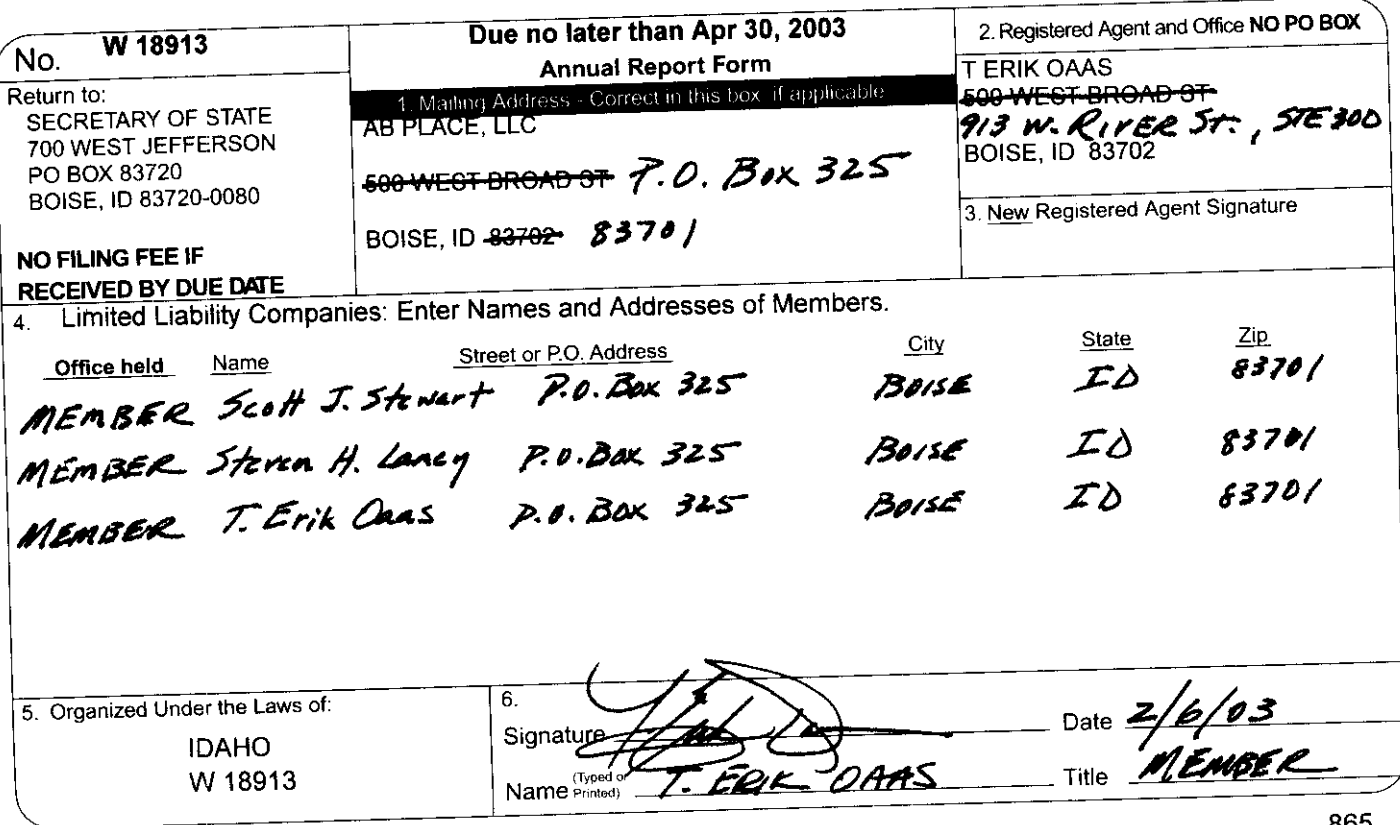 No. W 18913
Return to:
SECRETARY OF STATE
700 WEST JEFFERSON
PO BOX 83720
BOISE, ID 83720-0080
NO FILING FEE IF
RECEIVED BY DUE DATE
Due no later than Apr 30, 2003
Annual Report Form
1. Mailing Address - Correct in this box if applicable
AB PLACE, LLC
500 WEST BROAD ST P.O. Box 325
BOISE, ID 83702 83701
2. Registered Agent and Office NO PO BOX
T ERIK OAAS
500 WEST BROAD ST
913 W. RIVER ST., STE 300
BOISE, ID 83702
3. New Registered Agent Signature
4. Limited Liability Companies: Enter Names and Addresses of Members.
Office held Name Street or P.O. Address City State Zip
MEMBER Scott J. Stewart P.O. Box 325 BOISE ID 83701
MEMBER Steven H. Laney P.O. Box 325 BOISE ID 83701
MEMBER T. Erik Oaas P.O. Box 325 BOISE ID 83701
5. Organized Under the Laws of:
IDAHO
W 18913
6.
Signature Date 2/6/03
Name (Typed or Printed) T. ERIK OAAS Title MEMBER
865